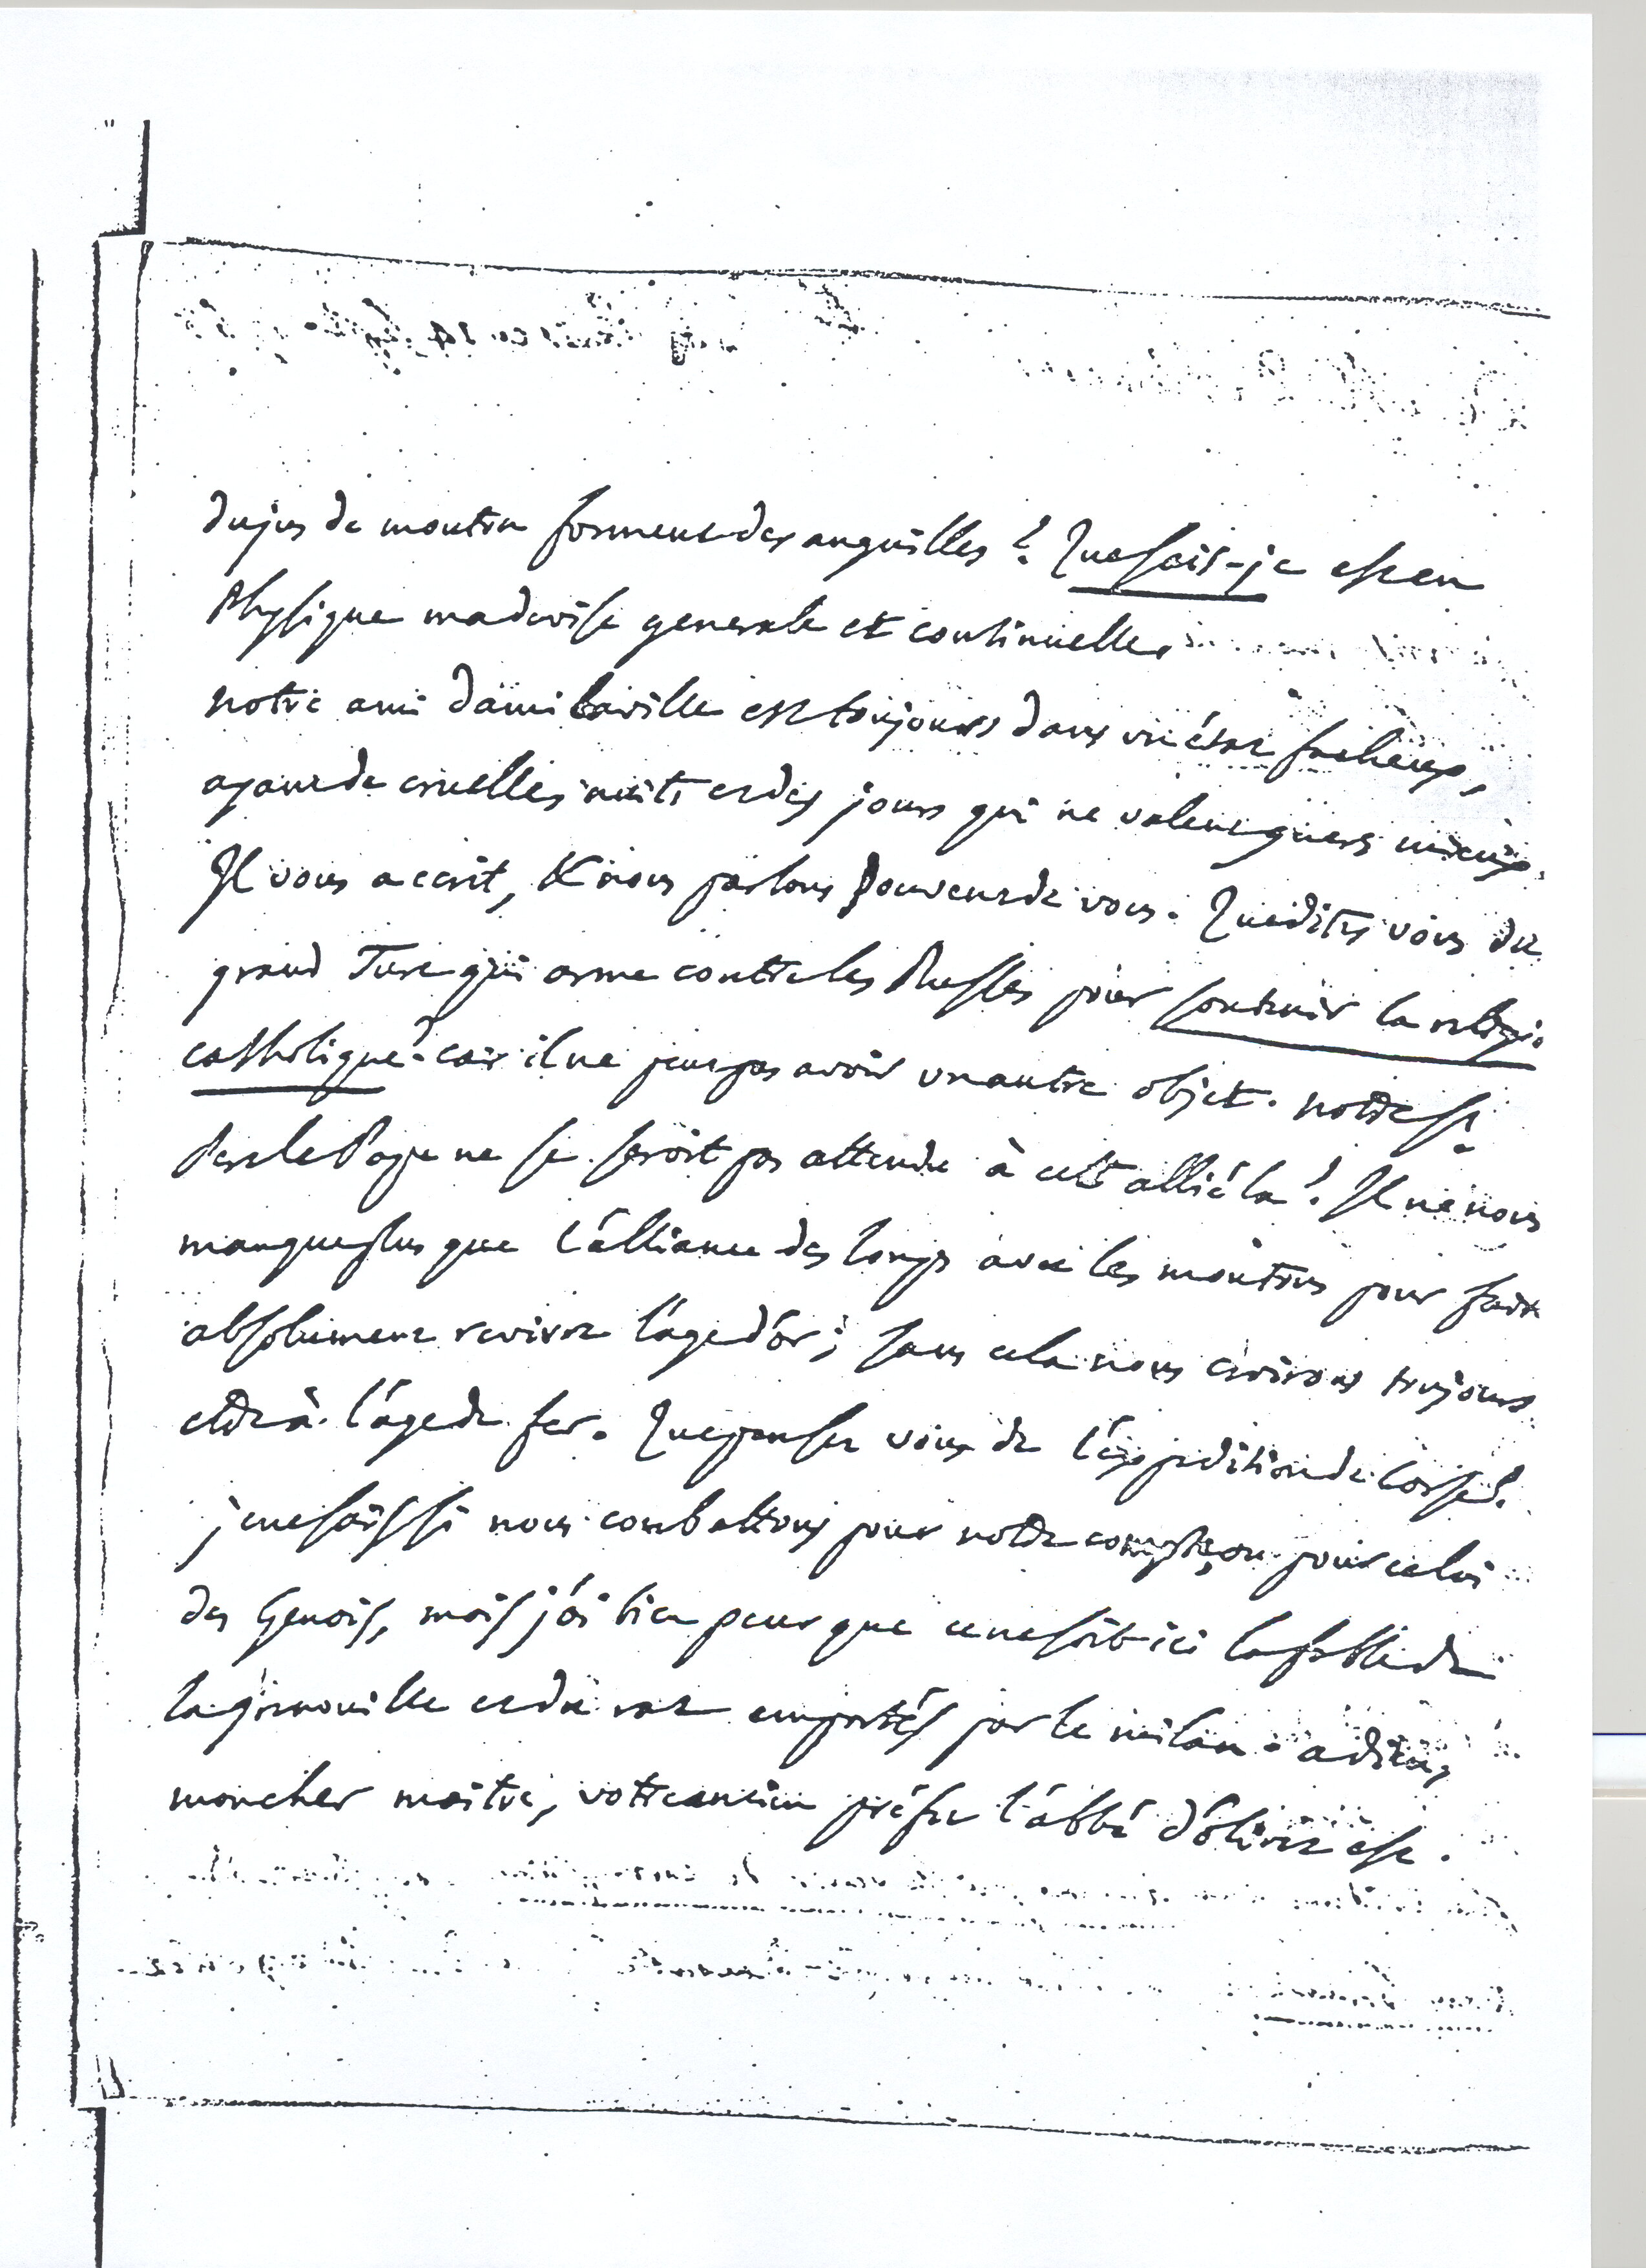 du jus de mouton forment des anguilles? Que sais-je est en
Physique ma devise generale et continuelle.
notre ami damilaville est toujours dans un état facheux,
ayant de cruelles nuits et des jours qui ne valent guere mieux.
Il vous a ecrit, & nous parlons souvent de vous. Que dites vous du
grand Turc qui arme contre les Russes pour soutenir la religio.
catholique? car il ne peut pas avoir un autre objet. notre St.
Pere le Pape ne se seroit pas attendu à cet allié là! Il ne nous
manque plus que l'alliance des loups avec les moutons pour faire
absolument revivre l'age d'or; sans cela nous croirons toujours
etre à l'age de fer. Que pensez vous de l'expedition de Corse?
je ne sais si nous combattons pour notre compte, ou pour celui
des Genois, mais j'ai bien peur que ce ne soit ici la fable de
la grenouille et du rat emportés par le milan. adieu,
mon cher maitre, votre ancien préfet l'abbé d'olivet est.